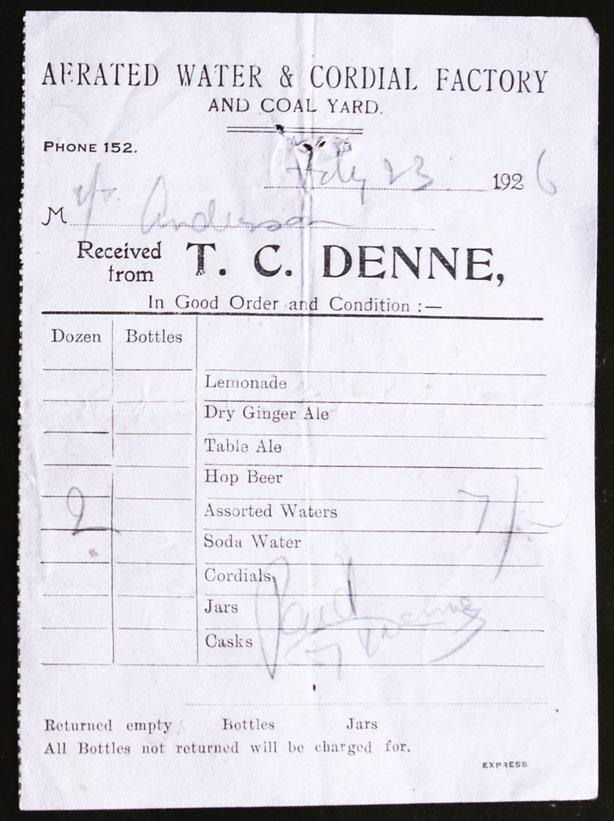 AERATED WATER & CORDIAL FACTORY
AND COAL YARD.
PHONE 152.
23 1926
M Anderson
Received from T. C. DENNE,
In Good Order and Condition :—
Dozen Bottles
Lemonade
Dry Ginger Ale
Table Ale
Hop Beer
2 Assorted Waters 7/-
Soda Water
Cordials
Jars
Paid Denne
Casks
Returned empty Bottles Jars
All Bottles not returned will be charged for.
EXPRESS